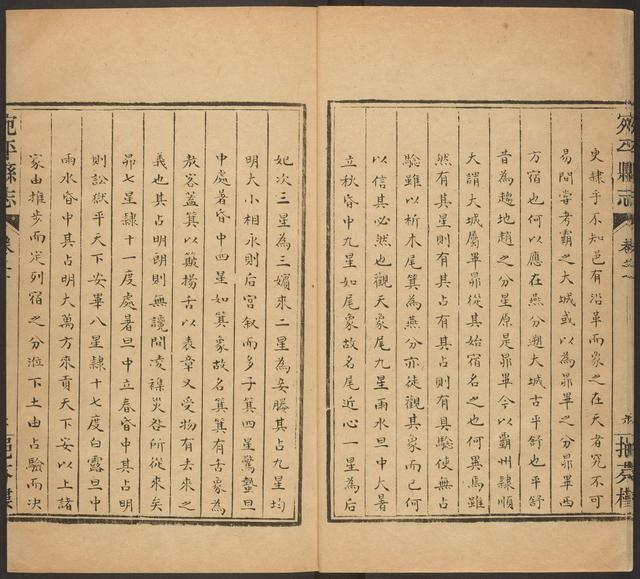 宛平縣志
卷之一
史隷乎不知邑有沿革而象之在天者究不可
易間嘗考霸之大城或以為昴畢之分昴畢西
方宿也何以應在燕分遡大城古平舒也平舒
昔為趙地趙之分星原是昴畢今以霸州隷順
大謂大城屬畢昴從其始宿名之也何異焉雖
然有其星則有其占有其占則有其騐使無占
騐雖以析木尾箕為燕分亦徒觀其象而已何
以信其必然也觀天象尾九星雨水旦中大暑
立秋昏中九星如尾象故名尾近心一星為后
妃次三星為三嬪來二星為妾媵其占九星均
明大小相承則后宮叙而多子箕四星驚蟄旦
中處暑昏中四星如箕象故名箕箕有舌象為
敖客蓋箕以簸揚舌以表章又受物有去來之
義也其占明朗則無讒間凌祲災咎所從來矣
昴七星隷十一度處暑旦中立春昏中其占明
則訟獄平天下安畢八星隷十七度白露旦中
雨水昏中其占明大萬方來貢天下安以上諸
家由推步而定列宿之分涖下土由占騐而決
宛平縣志